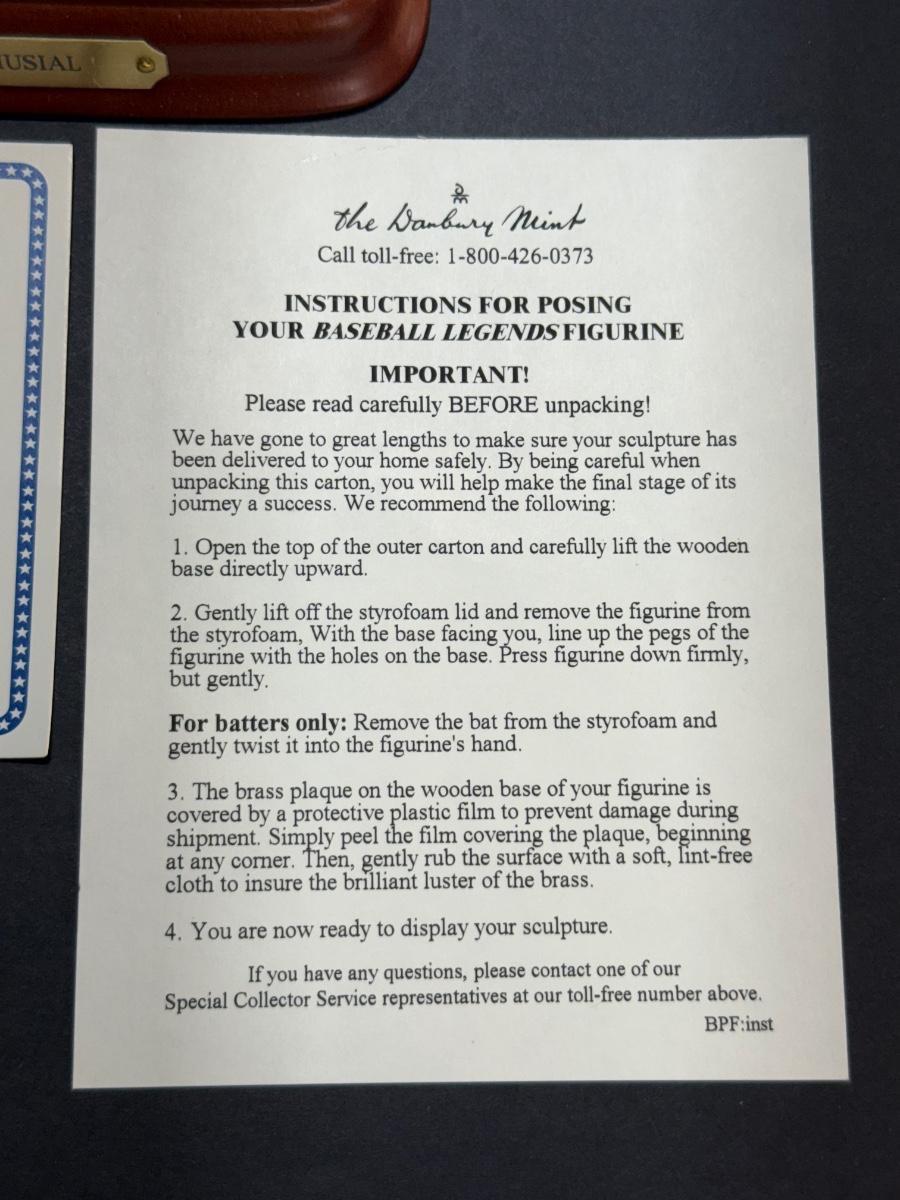 USIAL
the Danbury Mint
Call toll-free: 1-800-426-0373
INSTRUCTIONS FOR POSING
YOUR BASEBALL LEGENDS FIGURINE
IMPORTANT!
Please read carefully BEFORE unpacking!
We have gone to great lengths to make sure your sculpture has
been delivered to your home safely. By being careful when
unpacking this carton, you will help make the final stage of its
journey a success. We recommend the following:
1. Open the top of the outer carton and carefully lift the wooden
base directly upward.
2. Gently lift off the styrofoam lid and remove the figurine from
the styrofoam, With the base facing you, line up the pegs of the
figurine with the holes on the base. Press figurine down firmly,
but gently.
For batters only: Remove the bat from the styrofoam and
gently twist it into the figurine's hand.
3. The brass plaque on the wooden base of your figurine is
covered by a protective plastic film to prevent damage during
shipment. Simply peel the film covering the plaque, beginning
at any corner. Then, gently rub the surface with a soft, lint-free
cloth to insure the brilliant luster of the brass.
4. You are now ready to display your sculpture.
If you have any questions, please contact one of our
Special Collector Service representatives at our toll-free number above.
BPF:inst